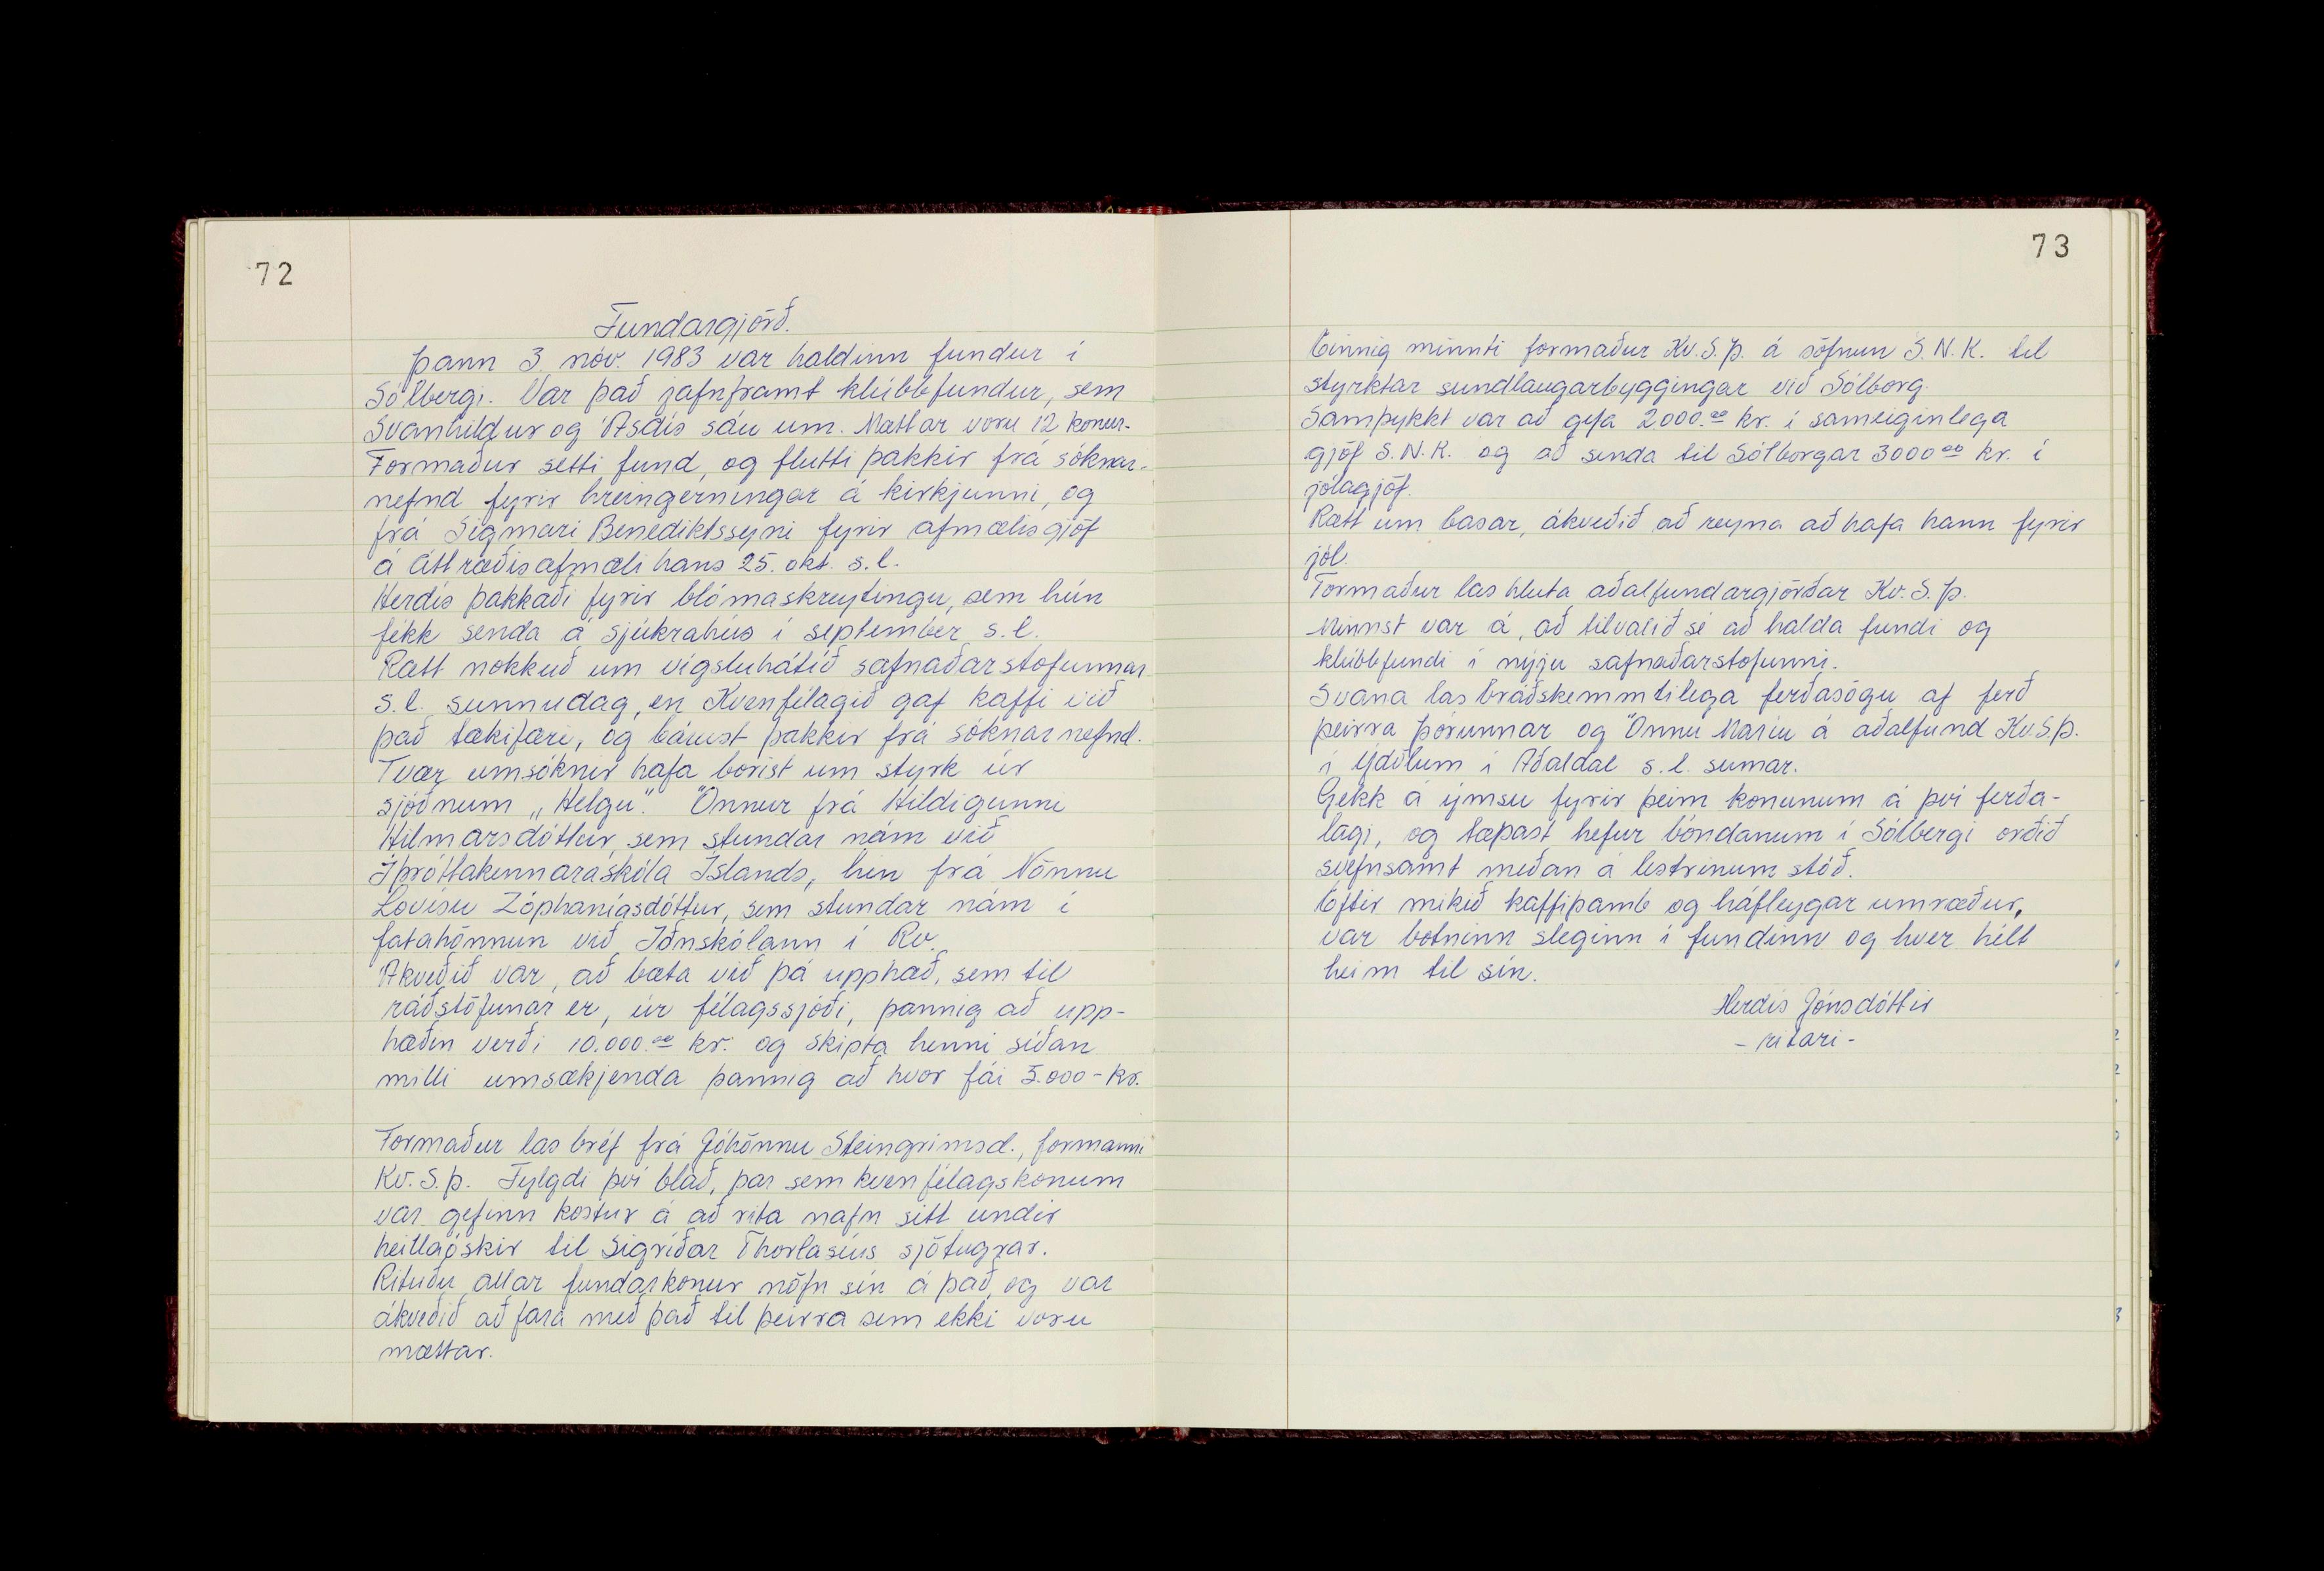 72
Fundargjörð.
Þann 3. nóv. 1983 var haldinn fundur í
Sólbergi. Var það jafnframt klúbbfundur, sem
Svanhildur og Ásdís sáu um. Mættar voru 12 konur.
Formaður setti fund, og flutti þakkir frá sóknar-
nefnd fyrir hreingerningar á kirkjunni, og
frá Sigmari Benediktssyni fyrir afmælisgjöf
á áttræðisafmæli hans 25. okt. s.l.
Herdís þakkaði fyrir blómaskreytingu, sem hún
fékk senda á sjúkrahús í september s.l.
Rætt nokkuð um vígsluhátíð safnaðarstofunnar
s.l. sunnudag, en Kvenfélagið gaf kaffi við
það tækifæri, og bárust þakkir frá sóknarnefnd.
Tvær umsóknir hafa borist um styrk úr
sjóðnum „Helgu". Önnur frá Hildigunni
Hilmarsdóttur, sem stundar nám við
Íþróttakennaraskóla Íslands, hin frá Nönnu
Lovísu Zóphaníasdóttur, sem stundar nám í
fatahönnun við Iðnskólann í Rv.
Ákveðið var, að bæta við þá upphæð, sem til
ráðstöfunar er, úr félagssjóði, þannig að upp-
hæðin verði 10.000.00 kr. og skipta henni síðan
milli umsækjenda þannig að hvor fái 5.000- kr.
Formaður las bréf frá Jóhönnu Steingrímsd., formanni
Kv.S.Þ. Fylgdi því blað, þar sem kvenfélagskonum
var gefinn kostur á að rita nafn sitt undir
heillaóskir til Sigríðar Thorlasíus sjötugrar.
Rituðu allar fundarkonur nöfn sín á það, og var
ákveðið að fara með það til þeirra sem ekki voru
mættar.
73
Einnig minnti formaður Kv.S.Þ. á söfnun S.N.K. til
styrktar sundlaugarbyggingar við Sólborg.
Samþykkt var að gefa 2000.00 kr. í sameiginlega
gjöf S.N.K. og að senda til Sólborgar 3000.00 kr. í
jólagjöf.
Rætt um basar, ákveðið að reyna að hafa hann fyrir
jól.
Formaður las hluta aðalfundargjörðar Kv.S.Þ.
Minnst var á, að tilvalið sé að halda fundi og
klúbbfundi í nýju safnaðarstofunni.
Svana las bráðskemmtilega ferðasögu af ferð
þeirra Þórunnar og Önnu Maríu á aðalfund Kv.S.Þ.
í Ýdölum í Aðaldal s.l. sumar.
Gekk á ýmsu fyrir þeim konunum á því ferða-
lagi, og tæpast hefur bóndanum í Sólbergi orðið
svefnsamt meðan á lestrinum stóð.
Eftir mikið kaffiþamb og háfleygar umræður,
var botninn sleginn í fundinn og hver hélt
heim til sín.
Herdís Jónsdóttir
- ritari -